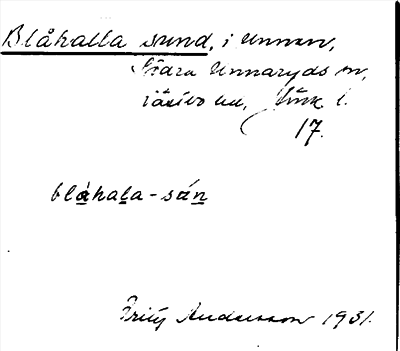 Blåkalla sund, i Unnen,
Södra Unnaryds sn,
Västbo hd, Jönk l.
17.
blåhala-sún
Fritz Andersson 1931.